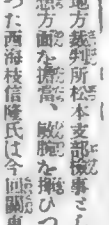 地方裁判所松本支部檢事とし
方面を擔當　敏腕を揮ひつ
った西海枝信隆氏は今回關東